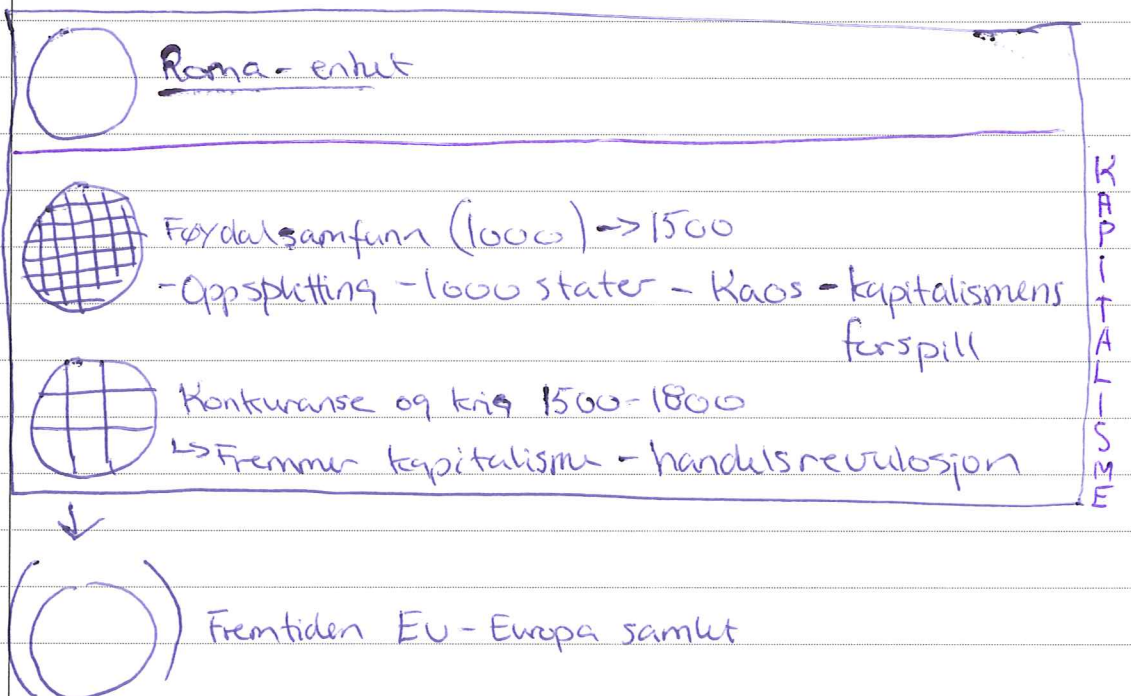 Roma - enhet
Føydalsamfunn (1000) -> 1500
- Oppsplitting - 1000 stater - Kaos - kapitalismens
forspill
Konkuranse og krig 1500-1800
↳ Fremmer kapitalisme - handelsrevulosjon
KAPITALISME
Fremtiden EU - Europa samlet